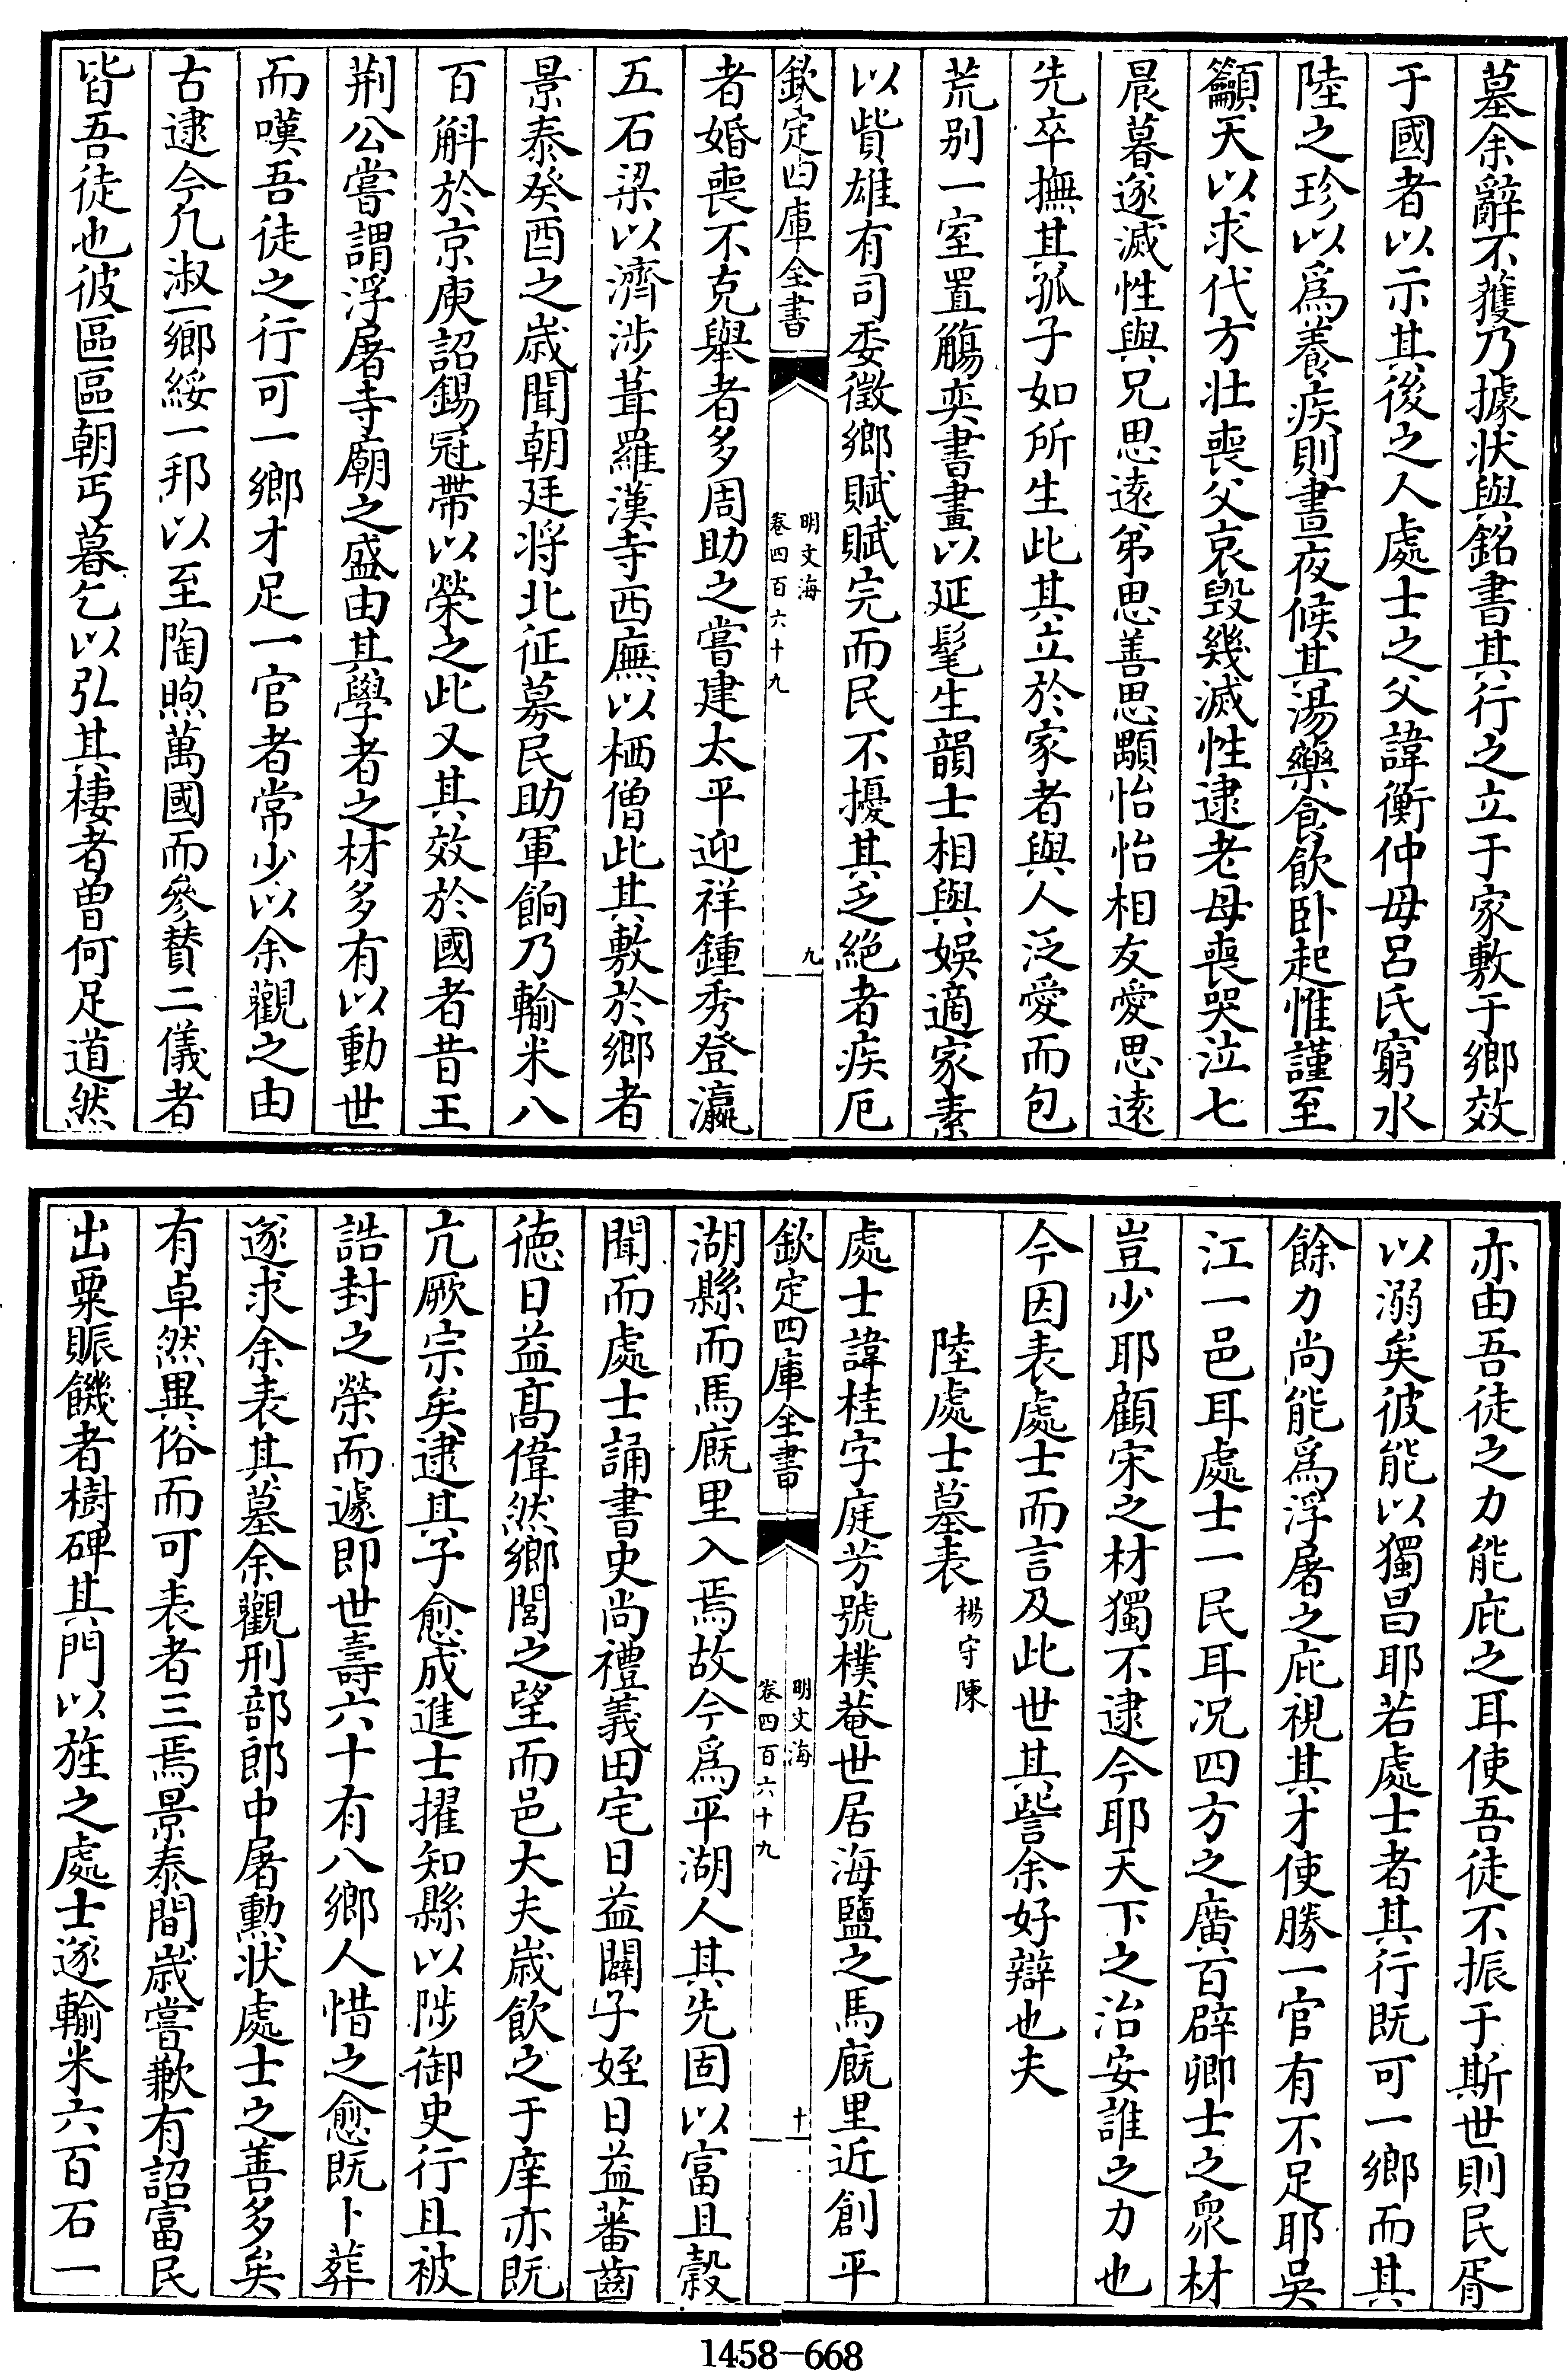 墓余辭不獲乃據状與銘書其行之立于家敷于鄉效
于國者以示其後之人處士之父諱衡仲毋呂氏窮水
陸之珍以爲養疾則晝夜候其湯藥食飲卧起惟謹至
籲天以求代方壮喪父哀毁幾滅性逮老母喪哭泣七
晨暮遂滅性與兄思逺弟思善思顒怡怡相友愛思逺
先卒撫其孤子如所生此其立於家者與人泛愛而包
荒别一室置觴奕書畫以延髦生韻士相與娯適家素
以貲雄有司委徵鄉賦賦完而民不擾其乏絶者疾厄
欽定四庫全書
明文海
卷四百六十九
九
者婚喪不克舉者多周助之嘗建太平迎祥鍾秀登瀛
五石梁以濟涉葺羅漢寺西廡以栖僧此其敷於鄉者
景泰癸酉之歳聞朝廷将北征募民助軍餉乃輸米八
百斛於京庾詔錫冠帶以榮之此又其效於國者昔王
荆公嘗謂浮屠寺廟之盛由其學者之材多有以動世
而嘆吾徒之行可一鄉才足一官者常少以余觀之由
古逮今凡淑一鄉綏一邦以至陶煦萬國而參賛二儀者
皆吾徒也彼區區朝丐暮乞以弘其棲者曽何足道然
亦由吾徒之力能庇之耳使吾徒不振于斯世則民胥
以溺矣彼能以獨昌耶若處士者其行既可一鄉而其
餘力尚能爲浮屠之庇視其才使勝一官有不足耶吳
江一邑耳處士一民耳况四方之廣百辟卿士之衆材
豈少耶顧宋之材獨不逮今耶天下之治安誰之力也
今因表處士而言及此世其訾余好辯也夫
陸處士墓表楊守陳
處士諱桂字庭芳號樸菴世居海鹽之馬廐里近創平
欽定四庫全書
明文海
卷四百六十九
十
湖縣而馬廐里入焉故今爲平湖人其先固以富且穀
聞而處士誦書史尚禮義田宅日益闢子姪日益蕃齒
徳日益髙偉然鄉閭之望而邑大夫歳飲之于庠亦既
亢厥宗矣逮其子愈成進士擢知縣以陟御史行且被
誥封之榮而遽即世壽六十有八鄉人惜之愈既卜葬
遂求余表其墓余觀刑部郎中屠勲状處士之善多矣
有卓然異俗而可表者三焉景泰間歳嘗歉有詔富民
出粟賑饑者樹碑其門以旌之處士遂輸米六百石一
1458-668